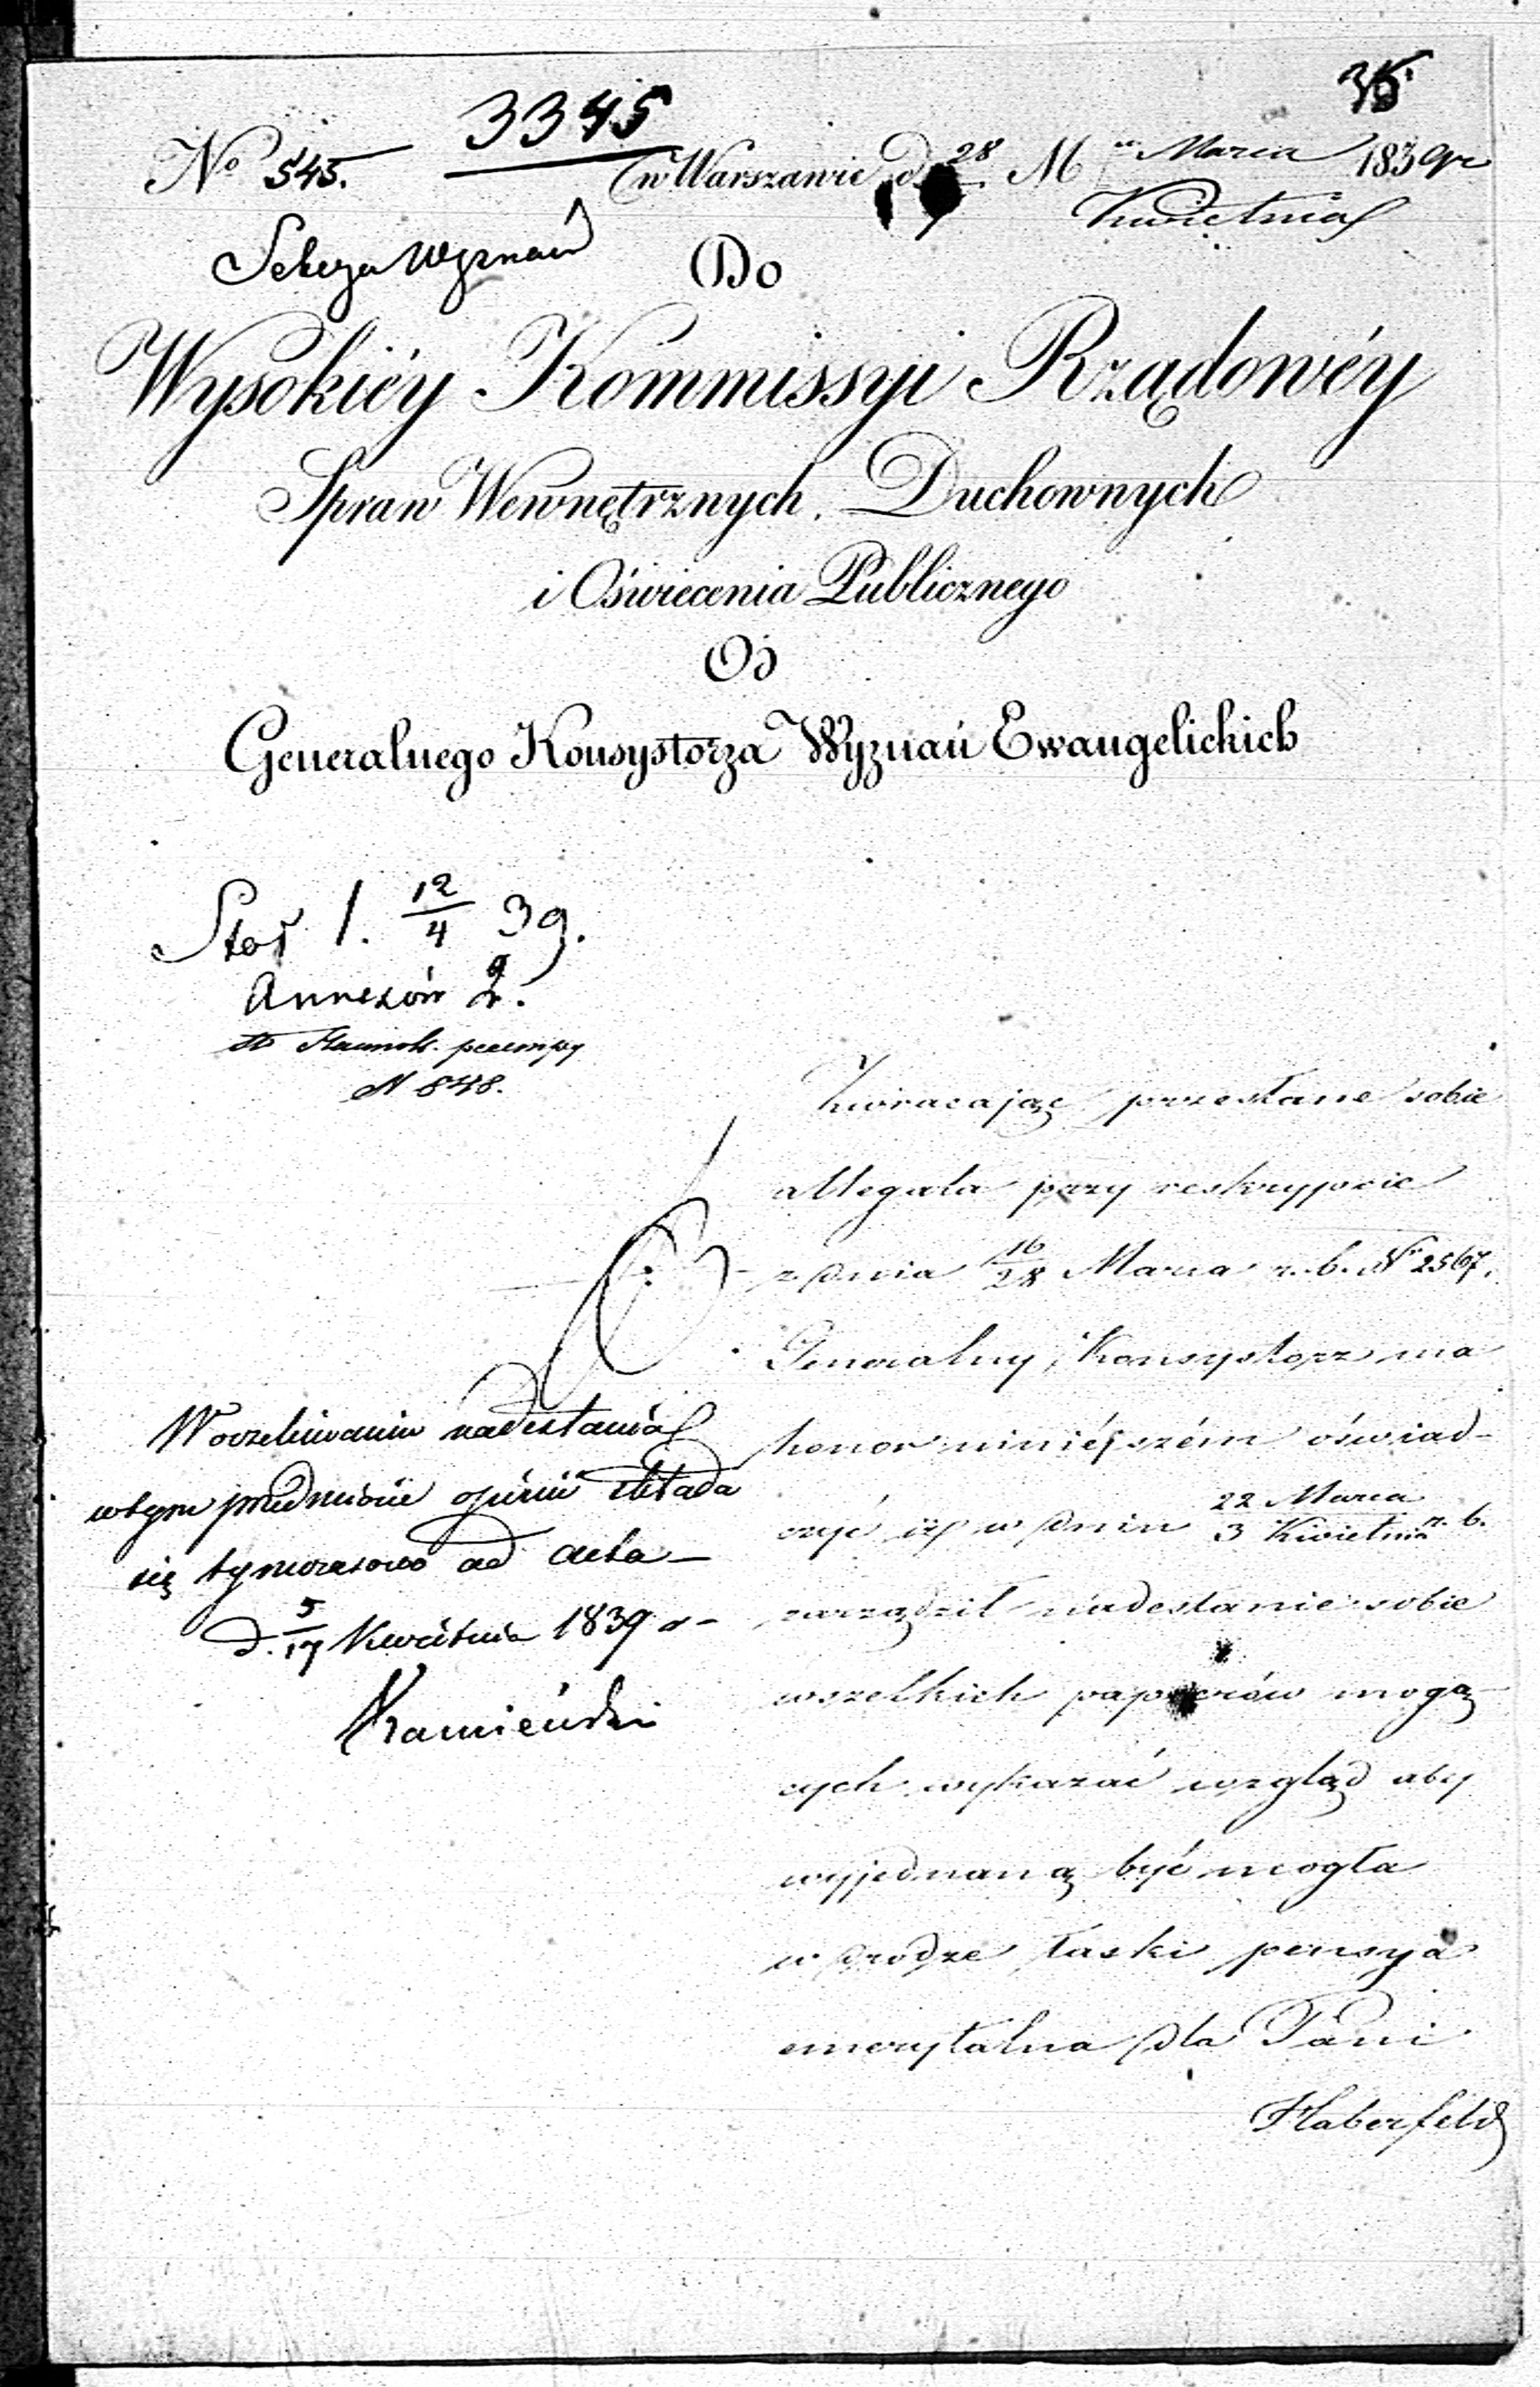 35
3345
No 545.
w Warszawie d 28 Mca Marca 1839 r
9 Kwietnia
Sekcya Wyznań
Do
Wysokiéy Kommissyi Rządowéy
Spraw Wewnętrznych, Duchownych
i Oświecenia Publicznego
Od
Generalnego Konsystorza Wyznań Ewangelickich
1. 12/4 39.
Annexów 2.
N 848.
Zwracając przesłane sobie
allegata przy reskrypcie
z dnia 16/28 Marca r. b. No 2567.
Generalny Konsystorz ma
honor niniéjszém oświad-
czyć iż w dniu 22 Marca/3 Kwietnia r. b.
zarządził nadesłanie sobie
wszelkich papierów mogą-
cych wykazać wzgląd aby
wyjednaną być mogła
w drodze łaski pensya
emerytalna dla Pani
Haberfeld
W oczekiwaniu nadesłania
w tym przedmiocie opinii składa
się tymczasowo ad acta –
d. 5/17 Kwietnia 1839 r –
Kamieński